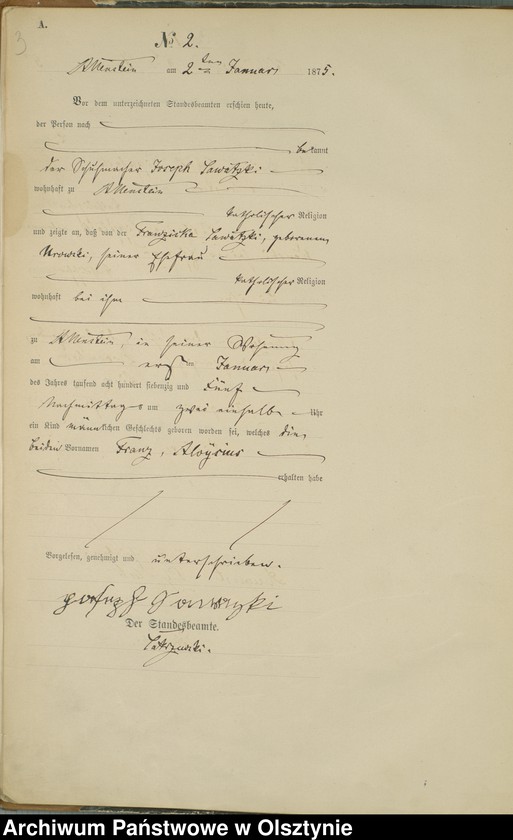 A.
3
№ 2.
Allenstein am 2ten Januar 1875.
Vor dem unterzeichneten Standesbeamten erschien heute,
der Person nach
bekannt
der Schuhmacher Joseph Sawatzki
wohnhaft zu Allenstein
katholischer Religion
und zeigte an, daß von der Franziska Sawatzki, geborenen
Urowski, seiner Ehefrau
katholischer Religion
wohnhaft bei ihm
zu Allenstein, in seiner Wohnung
am ersten Januar
des Jahres tausend acht hundert siebenzig und fünf
Nachmittags um zwei einhalb Uhr
ein Kind männlichen Geschlechts geboren worden sei, welches die
beiden Vornamen Franz, Aloysius
erhalten habe
Vorgelesen, genehmigt und unterschrieben.
Joseph Sawatzki
Der Standesbeamte.
Archiwum Państwowe w Olsztynie